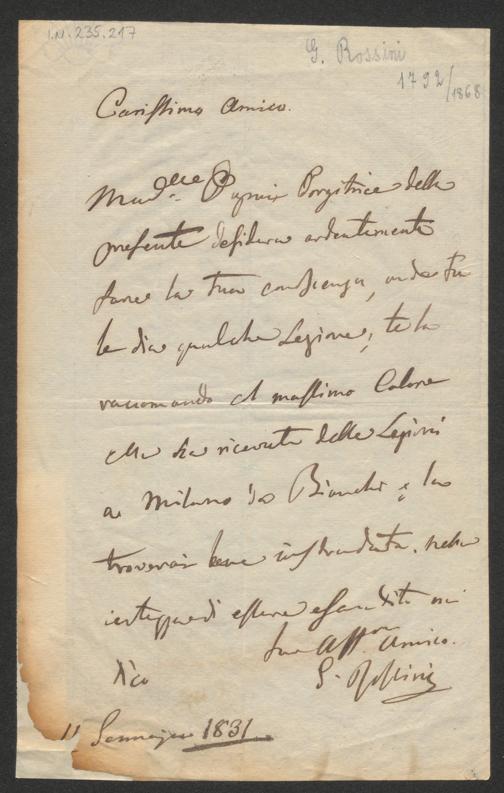 I.N. 235.217
G. Rossini
1792/1868
Carissimo Amico.
Mad.lle Porgitrice della
presente desidera ardentemente
fare la tua conoscenza, onde tu
le dia qualche Lezione; te la
raccomando col massimo Calore
ella ha ricevute delle Lezioni
a Milano da Bianchi e la
troverai bene instradata. nella
certezza di essere esaudito mi
dico
tuo Aff.mo Amico.
G. Rossini
11 Gennajo 1831